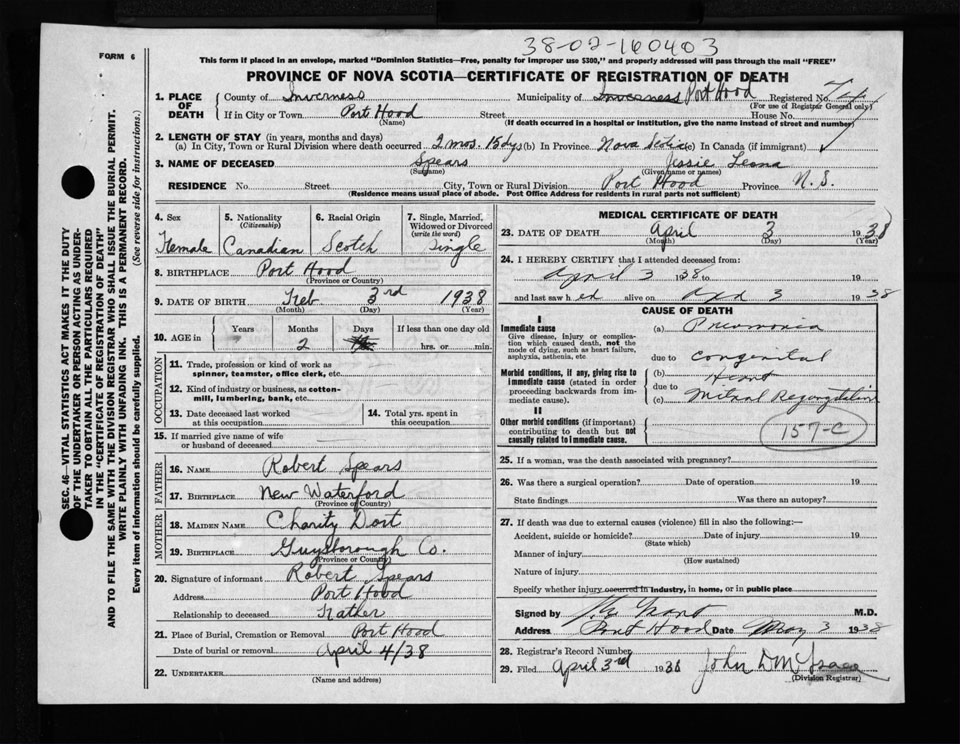 38-02-160403
FORM 6
This form if placed in an envelope, marked "Dominion Statistics—Free, penalty for improper use $300," and properly addressed will pass through the mail "FREE"
PROVINCE OF NOVA SCOTIA—CERTIFICATE OF REGISTRATION OF DEATH
1. PLACE OF DEATH
County of Inverness Municipality of Inverness Port Hood Registered No.
(For use of Registrar General only)
If in City or Town Port Hood Street House No.
(Name) (If death occurred in a hospital or institution, give the name instead of street and number)
2. LENGTH OF STAY (in years, months and days)
(a) In City, Town or Rural Division where death occurred 2 mos. 15 dys (b) In Province Nova Scotia (c) In Canada (if immigrant)
3. NAME OF DECEASED Spears Jessie Leona
(Surname) (Given name or names)
RESIDENCE No. Street City, Town or Rural Division Port Hood Province N.S.
(Residence means usual place of abode. Post Office Address for residents in rural parts not sufficient)
4. Sex
Female
5. Nationality
(Citizenship)
Canadian
6. Racial Origin
Scotch
7. Single, Married, Widowed or Divorced
(write the word)
Single
8. BIRTHPLACE Port Hood
(Province or Country)
9. DATE OF BIRTH Feb. 3rd 1938
(Month) (Day) (Year)
10. AGE in
Years Months Days If less than one day old
2 hrs. or min.
OCCUPATION
11. Trade, profession or kind of work as
spinner, teamster, office clerk, etc.
12. Kind of industry or business, as cotton-
mill, lumbering, bank, etc.
13. Date deceased last worked
at this occupation
14. Total yrs. spent in
this occupation
15. If married give name of wife
or husband of deceased
FATHER
16. NAME Robert Spears
17. BIRTHPLACE New Waterford
(Province or Country)
MOTHER
18. MAIDEN NAME Charity Dort
19. BIRTHPLACE Guysborough Co.
(Province or Country)
20. Signature of informant Robert Spears
Address Port Hood
Relationship to deceased Father
21. Place of Burial, Cremation or Removal Port Hood
Date of burial or removal April 4/38
22. UNDERTAKER
(Name and address)
MEDICAL CERTIFICATE OF DEATH
23. DATE OF DEATH April 3 1938
(Month) (Day) (Year)
24. I HEREBY CERTIFY that I attended deceased from:
April 3 1938 to 19
and last saw h alive on 3 1938
CAUSE OF DEATH
I
Immediate cause
Give disease, injury or complication which caused death, not the mode of dying, such as heart failure, asphyxia, asthenia, etc.
(a) Pneumonia
due to Congenital
Morbid conditions, if any, giving rise to immediate cause (stated in order proceeding backwards from immediate cause)
(b) Heart
due to
(c) Mitral Regurgitation
II
Other morbid conditions (if important) contributing to death but not causally related to immediate cause.
157-C
25. If a woman, was the death associated with pregnancy?
26. Was there a surgical operation? Date of operation 19
State findings Was there an autopsy?
27. If death was due to external causes (violence) fill in also the following:—
Accident, suicide or homicide? Date of injury 19
(State which)
Manner of injury
(How sustained)
Nature of injury
Specify whether injury occurred in industry, in home, or in public place
Signed by M.D.
Address Port Hood Date May 3 1938
28. Registrar's Record Number
29. Filed April 3rd 193 John D
(Division Registrar)
SEC. 46—VITAL STATISTICS ACT MAKES IT THE DUTY
OF THE UNDERTAKER OR PERSON ACTING AS UNDER-
TAKER TO OBTAIN ALL THE PARTICULARS REQUIRED
IN THE "CERTIFICATE OF REGISTRATION OF DEATH"
AND TO FILE THE SAME WITH THE DIVISION REGISTRAR WHO SHALL ISSUE THE BURIAL PERMIT.
WRITE PLAINLY WITH UNFADING INK. THIS IS A PERMANENT RECORD.
Every item of information should be carefully supplied. (See reverse side for instructions.)